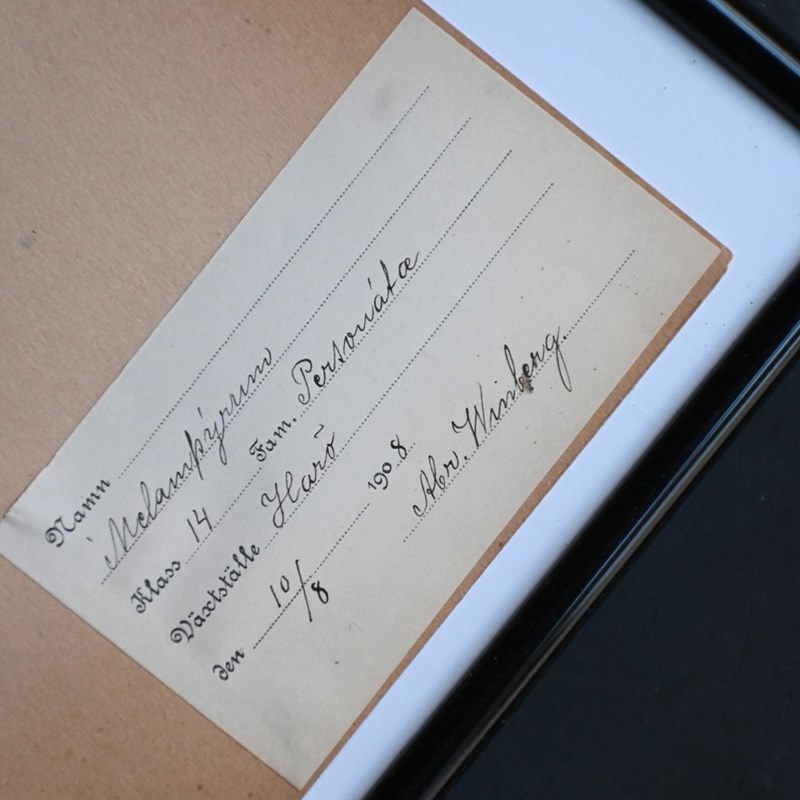 Namn
Melampýrum
Klass 14 Fam. Personátæ
Växtställe Harö
den 10/8 1908
Abr. Winberg.